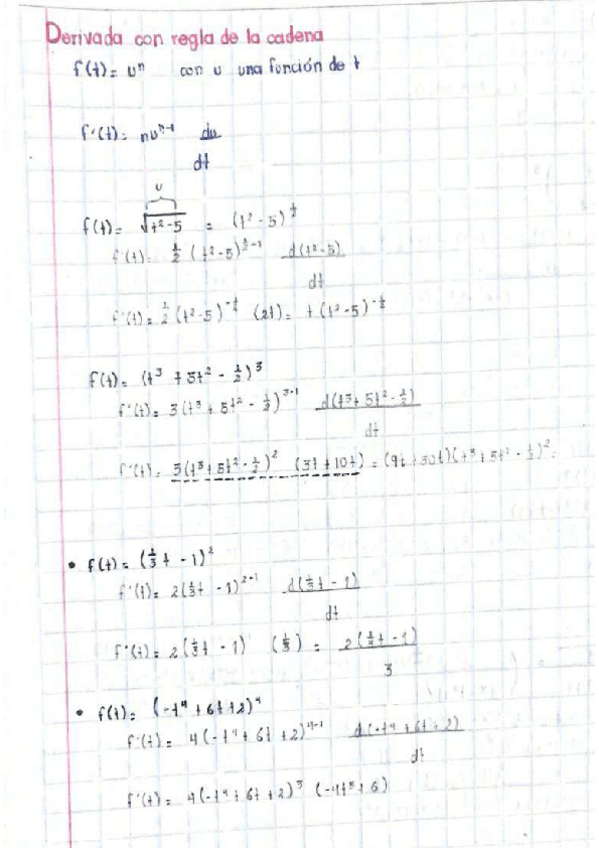 Derivada con regla de la cadena
f(t) = uⁿ con u una función de t
f'(t) = nuⁿ⁻¹ du/dt
u
f(t) = √(t² - 5) = (t² - 5)^(1/2)
f'(t) = 1/2 (t² - 5)^(1/2 - 1) d(t² - 5)/dt
f'(t) = 1/2 (t² - 5)^(-1/2) (2t) = t(t² - 5)^(-1/2)
f(t) = (t³ + 5t² - 1/2)³
f'(t) = 3(t³ + 5t² - 1/2)³⁻¹ d(t³ + 5t² - 1/2)/dt
f'(t) = 3(t³ + 5t² - 1/2)² (3t + 10t) = (9t + 30t)(t³ + 5t² - 1/2)² =
• f(t) = (1/3 t - 1)²
f'(t) = 2(1/3 t - 1)²⁻¹ d(1/3 t - 1)/dt
f'(t) = 2(1/3 t - 1) (1/3) = 2(1/3 t - 1)/3
• f(t) = (-t⁴ + 6t + 2)⁴
f'(t) = 4(-t⁴ + 6t + 2)⁴⁻¹ d(-t⁴ + 6t + 2)/dt
f'(t) = 4(-t⁴ + 6t + 2)³ (-4t³ + 6)